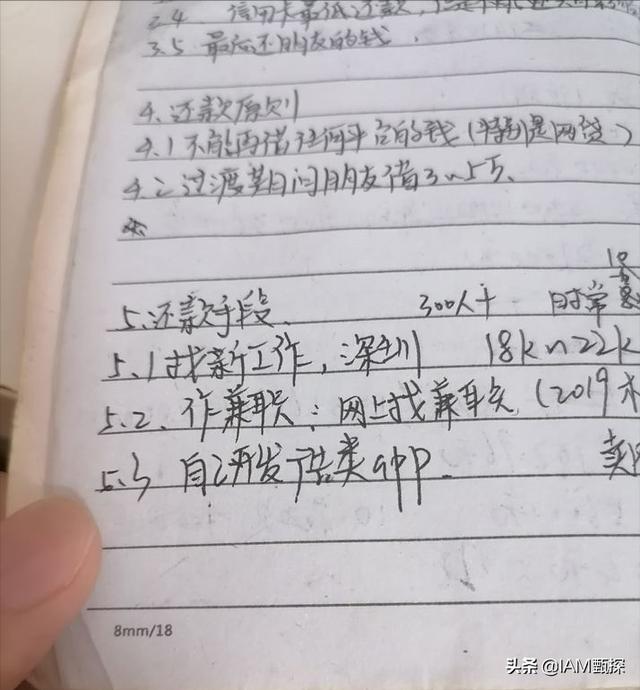 3.4 信用卡最低还款,
3.5 最后还朋友的钱.
4.还款原则
4.1 不能再借任何平台的钱(特别是网贷)
4.2 过渡期问朋友借3~5万.
5.还款手段. 300人+ 时常
5.1 找新工作,深圳 18k~22k
5.2. 作兼职:网上找兼职(2019
5.3 自己开发广告类app.
8mm/18
头条 @IAM甄探